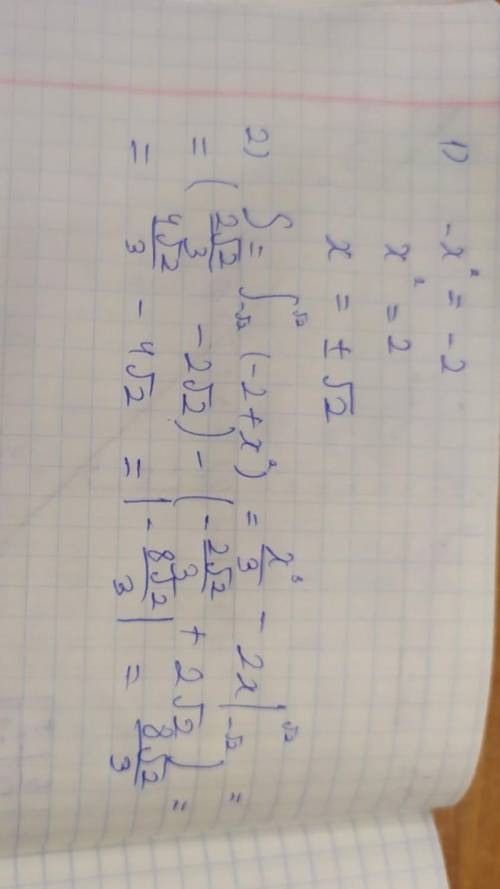 1) -x² = -2
x² = 2
x = ± √2
2) ∫ = ∫_{-√2}^{√2} (-2 + x²) = x³/3 - 2x |_{-√2}^{√2} =
= (2√2/3 - 2√2) - (-2√2/3 + 2√2) =
= 4√2/3 - 4√2 = |-8√2/3| = 8√2/3